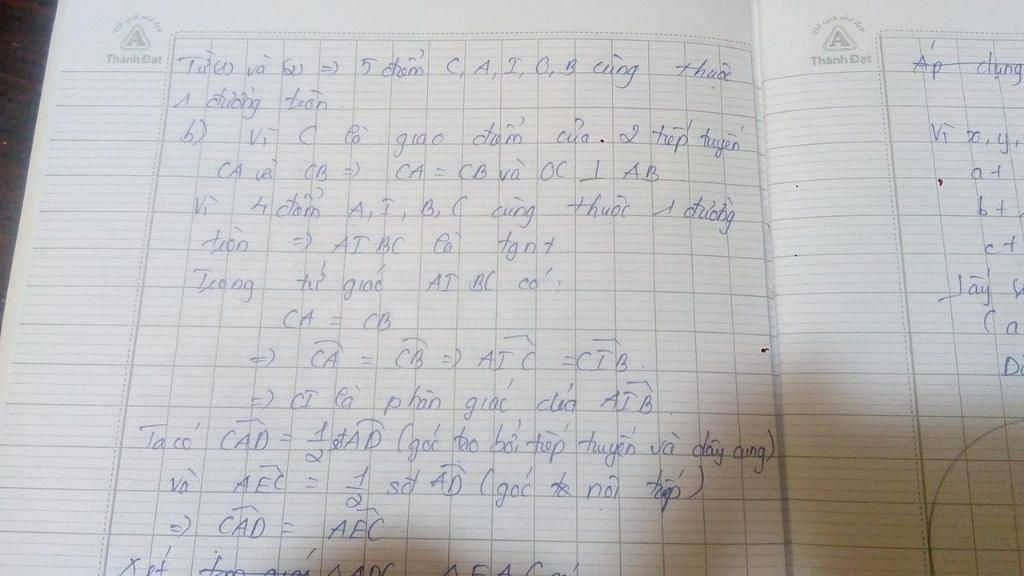 Vở sạch chữ đẹp
Thành Đạt
Từ (1) và (2) => 5 điểm C, A, I, O, B cùng thuộc
1 đường tròn.
b) Vì C là giao điểm của 2 tiếp tuyến
CA và CB => CA = CB và OC ⊥ AB
Vì 4 điểm A, I, B, C cùng thuộc 1 đường
tròn => AIBC là tgnt.
Trong tứ giác AIBC có:
CA = CB
=> CA = CB => AIC = CIB.
=> CI là phân giác của AIB
Ta có CAD = 1/2 sđ AD (góc tạo bởi tiếp tuyến và dây cung)
và AEC = 1/2 sđ AD (góc nội tiếp)
=> CAD = AEC
Xét ΔADC
Vở sạch chữ đẹp
Thành Đạt
Áp dụng
Vì x, y,
a +
b +
c +
Lấy
( a